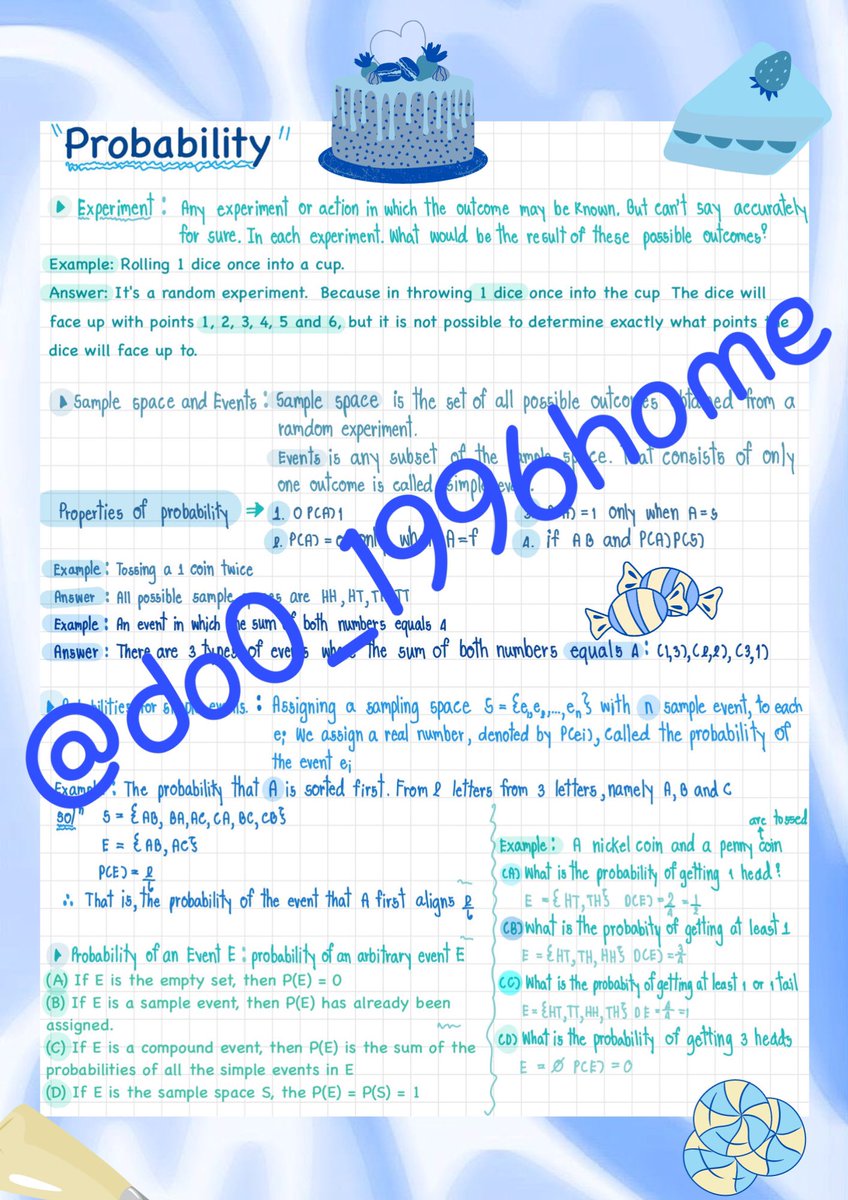 "Probability"
Experiment : Any experiment or action in which the outcome may be known. But can't say accurately
for sure. In each experiment. What would be the result of these possible outcomes?
Example: Rolling 1 dice once into a cup.
Answer: It's a random experiment. Because in throwing 1 dice once into the cup The dice will
face up with points 1, 2, 3, 4, 5 and 6, but it is not possible to determine exactly what points the
dice will face up to.
Sample space and Events : Sample space is the set of all possible outcomes obtained from a
ramdom experiment.
Events is any subset of the sample space. That consists of only
one outcome is called simple
Properties of probability → 1. 0 P(A) 1
=1 only when A=s
2. P(A) = only when A=f
4. if A B and P(A) P(S)
Example : Tossing a 1 coin twice
Answer : All possible sample are HH, HT, TT
Example : An event in which the sum of both numbers equals 4
Answer : There are 3 types of events the sum of both numbers equals A : (1,3), (2,2), (3,1)
: Assigning a sampling space S = {e₁,e₂,...,eₙ} with n sample event, to each
eᵢ We assign a real number, denoted by P(ei), called the probability of
the event eᵢ
Example : The probability that A is sorted first. From 2 letters from 3 letters, namely A, B and C
solⁿ S = {AB, BA, AC, CA, BC, CB}
E = {AB, AC}
P(E) = 2/6
∴ That is, the probability of the event that A first aligns 2/6
Probability of an Event E : probability of an arbitrary event E
(A) If E is the empty set, then P(E) = 0
(B) If E is a sample event, then P(E) has already been
assigned.
(C) If E is a compound event, then P(E) is the sum of the
probabilities of all the simple events in E
(D) If E is the sample space S, the P(E) = P(S) = 1
are tossed
Example : A nickel coin and a penny coin
(A) What is the probability of getting 1 head?
E = {HT, TH} D(E) = 2/4 = 1/2
(B) What is the probabity of getting at least 1
E = {HT, TH, HH} D(E) = 3/4
(C) What is the probabity of getting at least 1 or 1 tail
E = {HT, TT, HH, TH} D E = 4/4 = 1
(D) What is the probability of getting 3 heads
E = Ø P(E) = 0
@do0_1996home